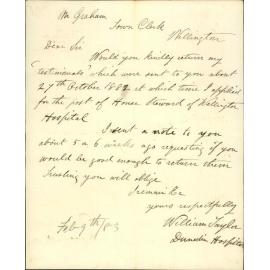 Mr Graham
Town Clerk
Wellington
Dear Sir
Would you kindly return my
testimonials which were sent to you about
27th October 1882 at which time I applied
for the post of House Steward of Wellington
Hospital
I sent a note to you
about 5 or 6 weeks ago requesting if you
would be good enough to return them
Trusting you will oblige
I remain
yours respectfully
William Taylor
Dunedin Hospital
Feb 9th/83